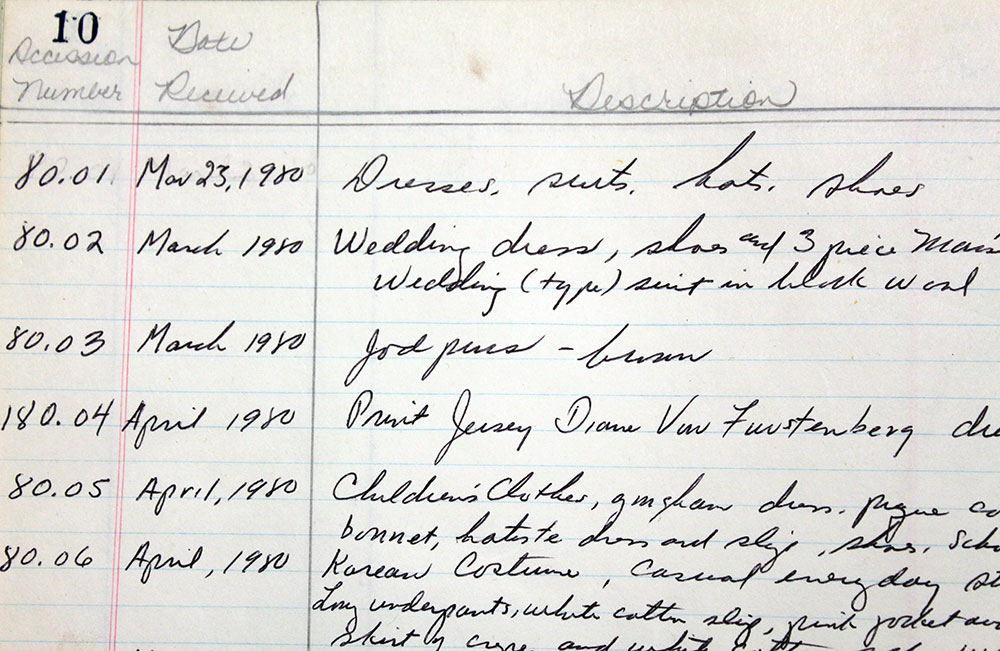 10
Accession Date
Number Received Description
80.01 Mar 23, 1980 Dresses, suits, hats, shoes
80.02 March 1980 Wedding dress, shoes and 3 piece Man's
Wedding (type) suit in black wool
80.03 March 1980 Jodpurs - brown
180.04 April 1980 Print Jersey Diane Von Furstenberg
80.05 April, 1980 Children's Clothes, gingham dress, pique
bonnet, batiste dress and slip, shoes,
80.06 April, 1980 Korean Costume, casual everyday
Long underpants, white cotton slip, pink jacket
skirt of crepe and white